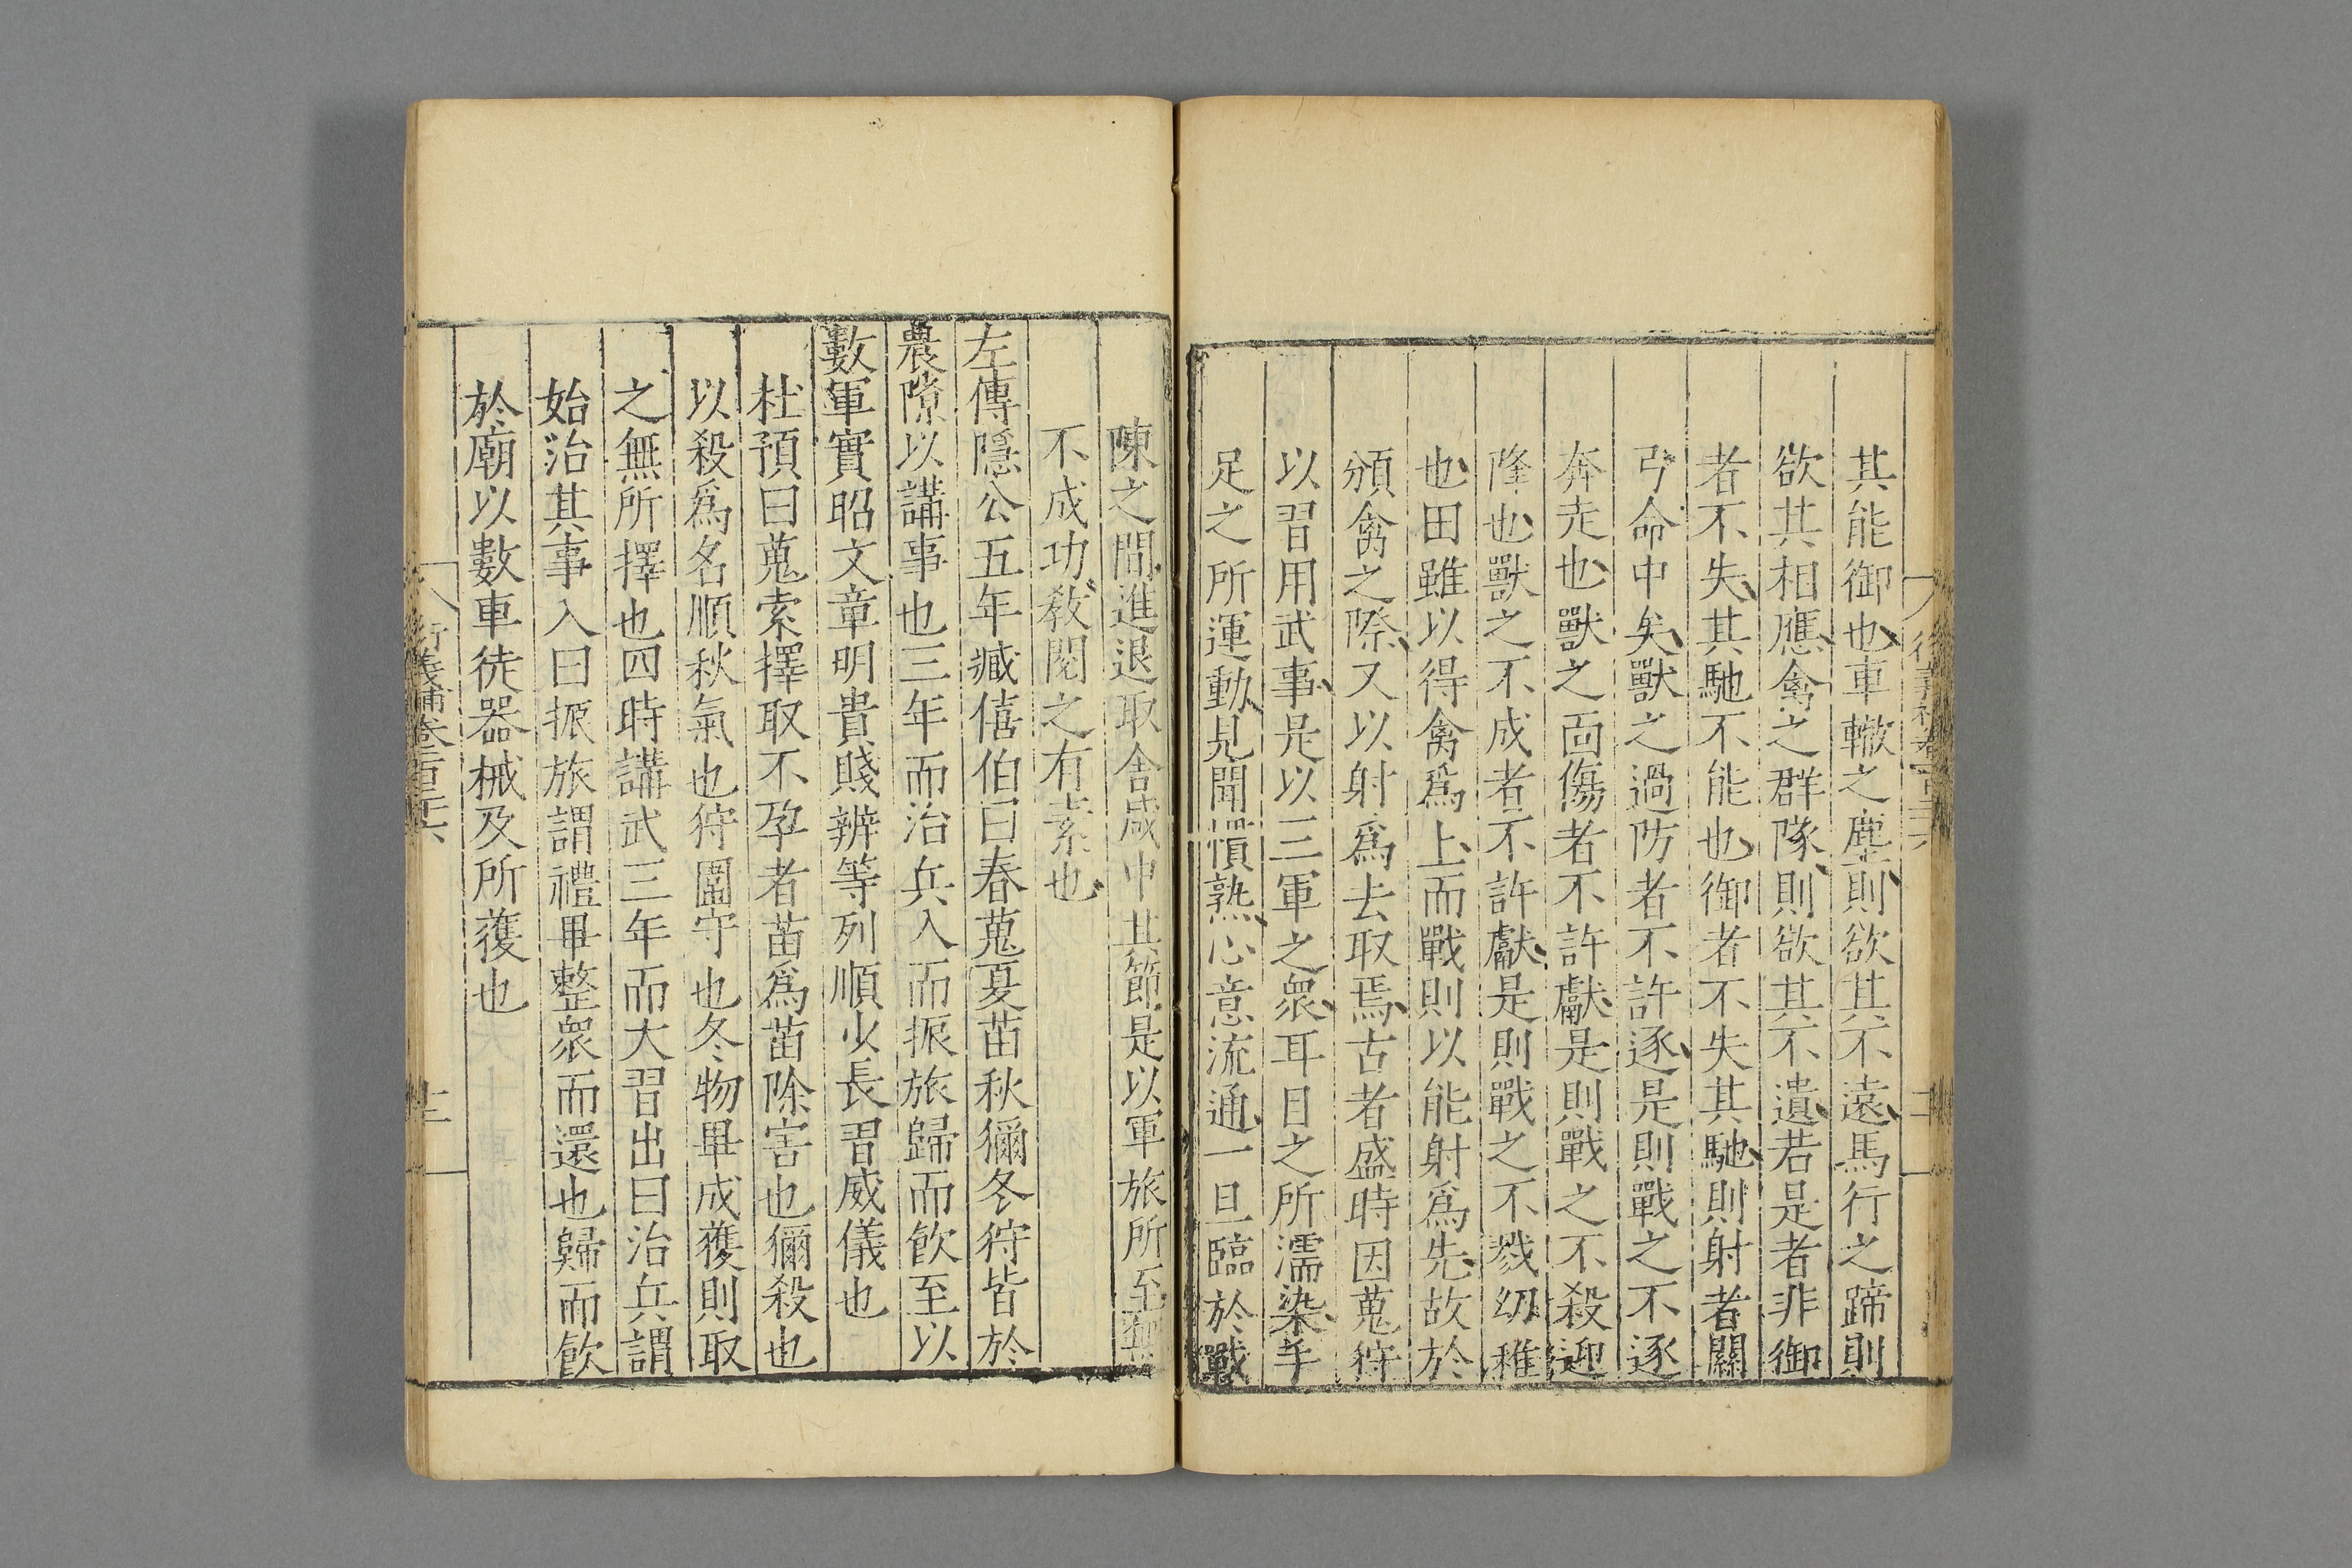 其能御也車轍之塵則欲其不遠馬行之蹄則
欲其相應禽之群隊則欲其不遺若是者非御
者不失其馳不能也御者不失其馳則射者關
弓命中矣獸之過防者不許逐是則戰之不逐
奔走也獸之面傷者不許獻是則戰之不殺迎
降也獸之不成者不許獻是則戰之不戮幼稚
也田雖以得禽爲上而戰則以能射爲先故於
頒禽之際又以射爲去取焉古者盛時因蒐狩
以習用武事是以三軍之衆耳目之所濡染手
足之所運動見聞慣熟心意流通一旦臨於戰
陳之間進退取舍咸中其節是以軍旅所至無
不成功教閱之有素也
左傳隱公五年臧僖伯曰春蒐夏苗秋獮冬狩皆於
農隙以講事也三年而治兵入而振旅歸而飲至以
數軍實昭文章明貴賤辨等列順少長習威儀也
杜預曰蒐索擇取不孕者苗爲苗除害也獮殺也
以殺爲名順秋氣也狩圍守也冬物畢成獲則取
之無所擇也四時講武三年而大習出曰治兵謂
始治其事入曰振旅謂禮畢整衆而還也歸而飲
於廟以數車徒器械及所獲也
衍義補卷